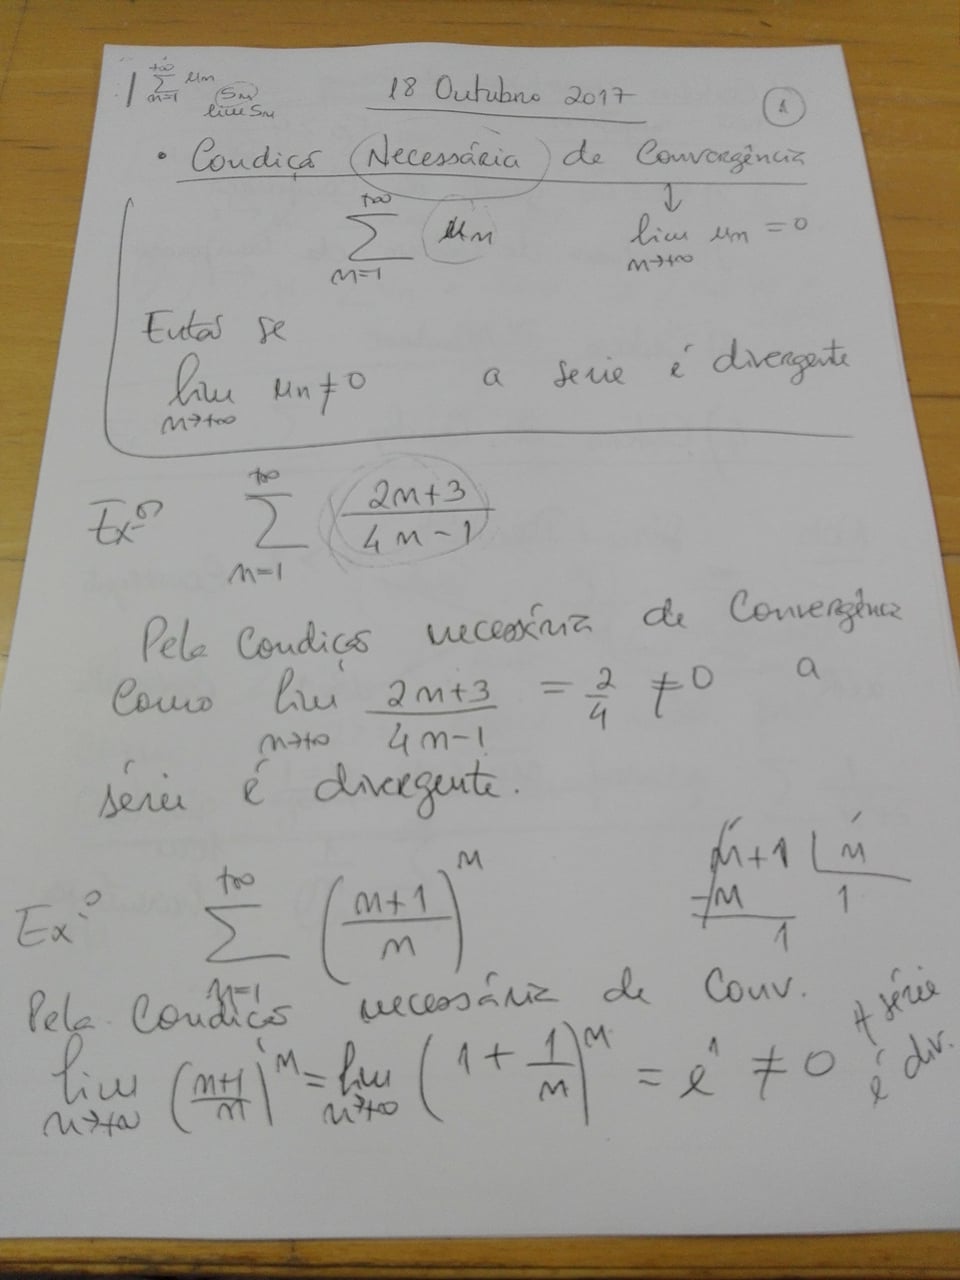 +∞
∑ un
n=1
Sn
lim Sn
18 Outubro 2017
1
• Condição Necessária de Convergência
+∞
∑ un
n=1
↓
lim un = 0
n→+∞
Então se
lim un ≠ 0 a serie é divergente
n→+∞
Exº
+∞
∑ (2n+3)/(4n-1)
n=1
Pela Condição necessária de Convergência
Como lim (2n+3)/(4n-1) = 2/4 ≠ 0 a
n→+∞
série é divergente.
Exº
+∞
∑ ((n+1)/n)^n
n=1
n+1 | n
-n 1
1
Pela Condição necessária de Conv.
lim ((n+1)/n)^n = lim (1 + 1/n)^n = e^1 ≠ 0 A série
n→+∞ n→+∞ é div.